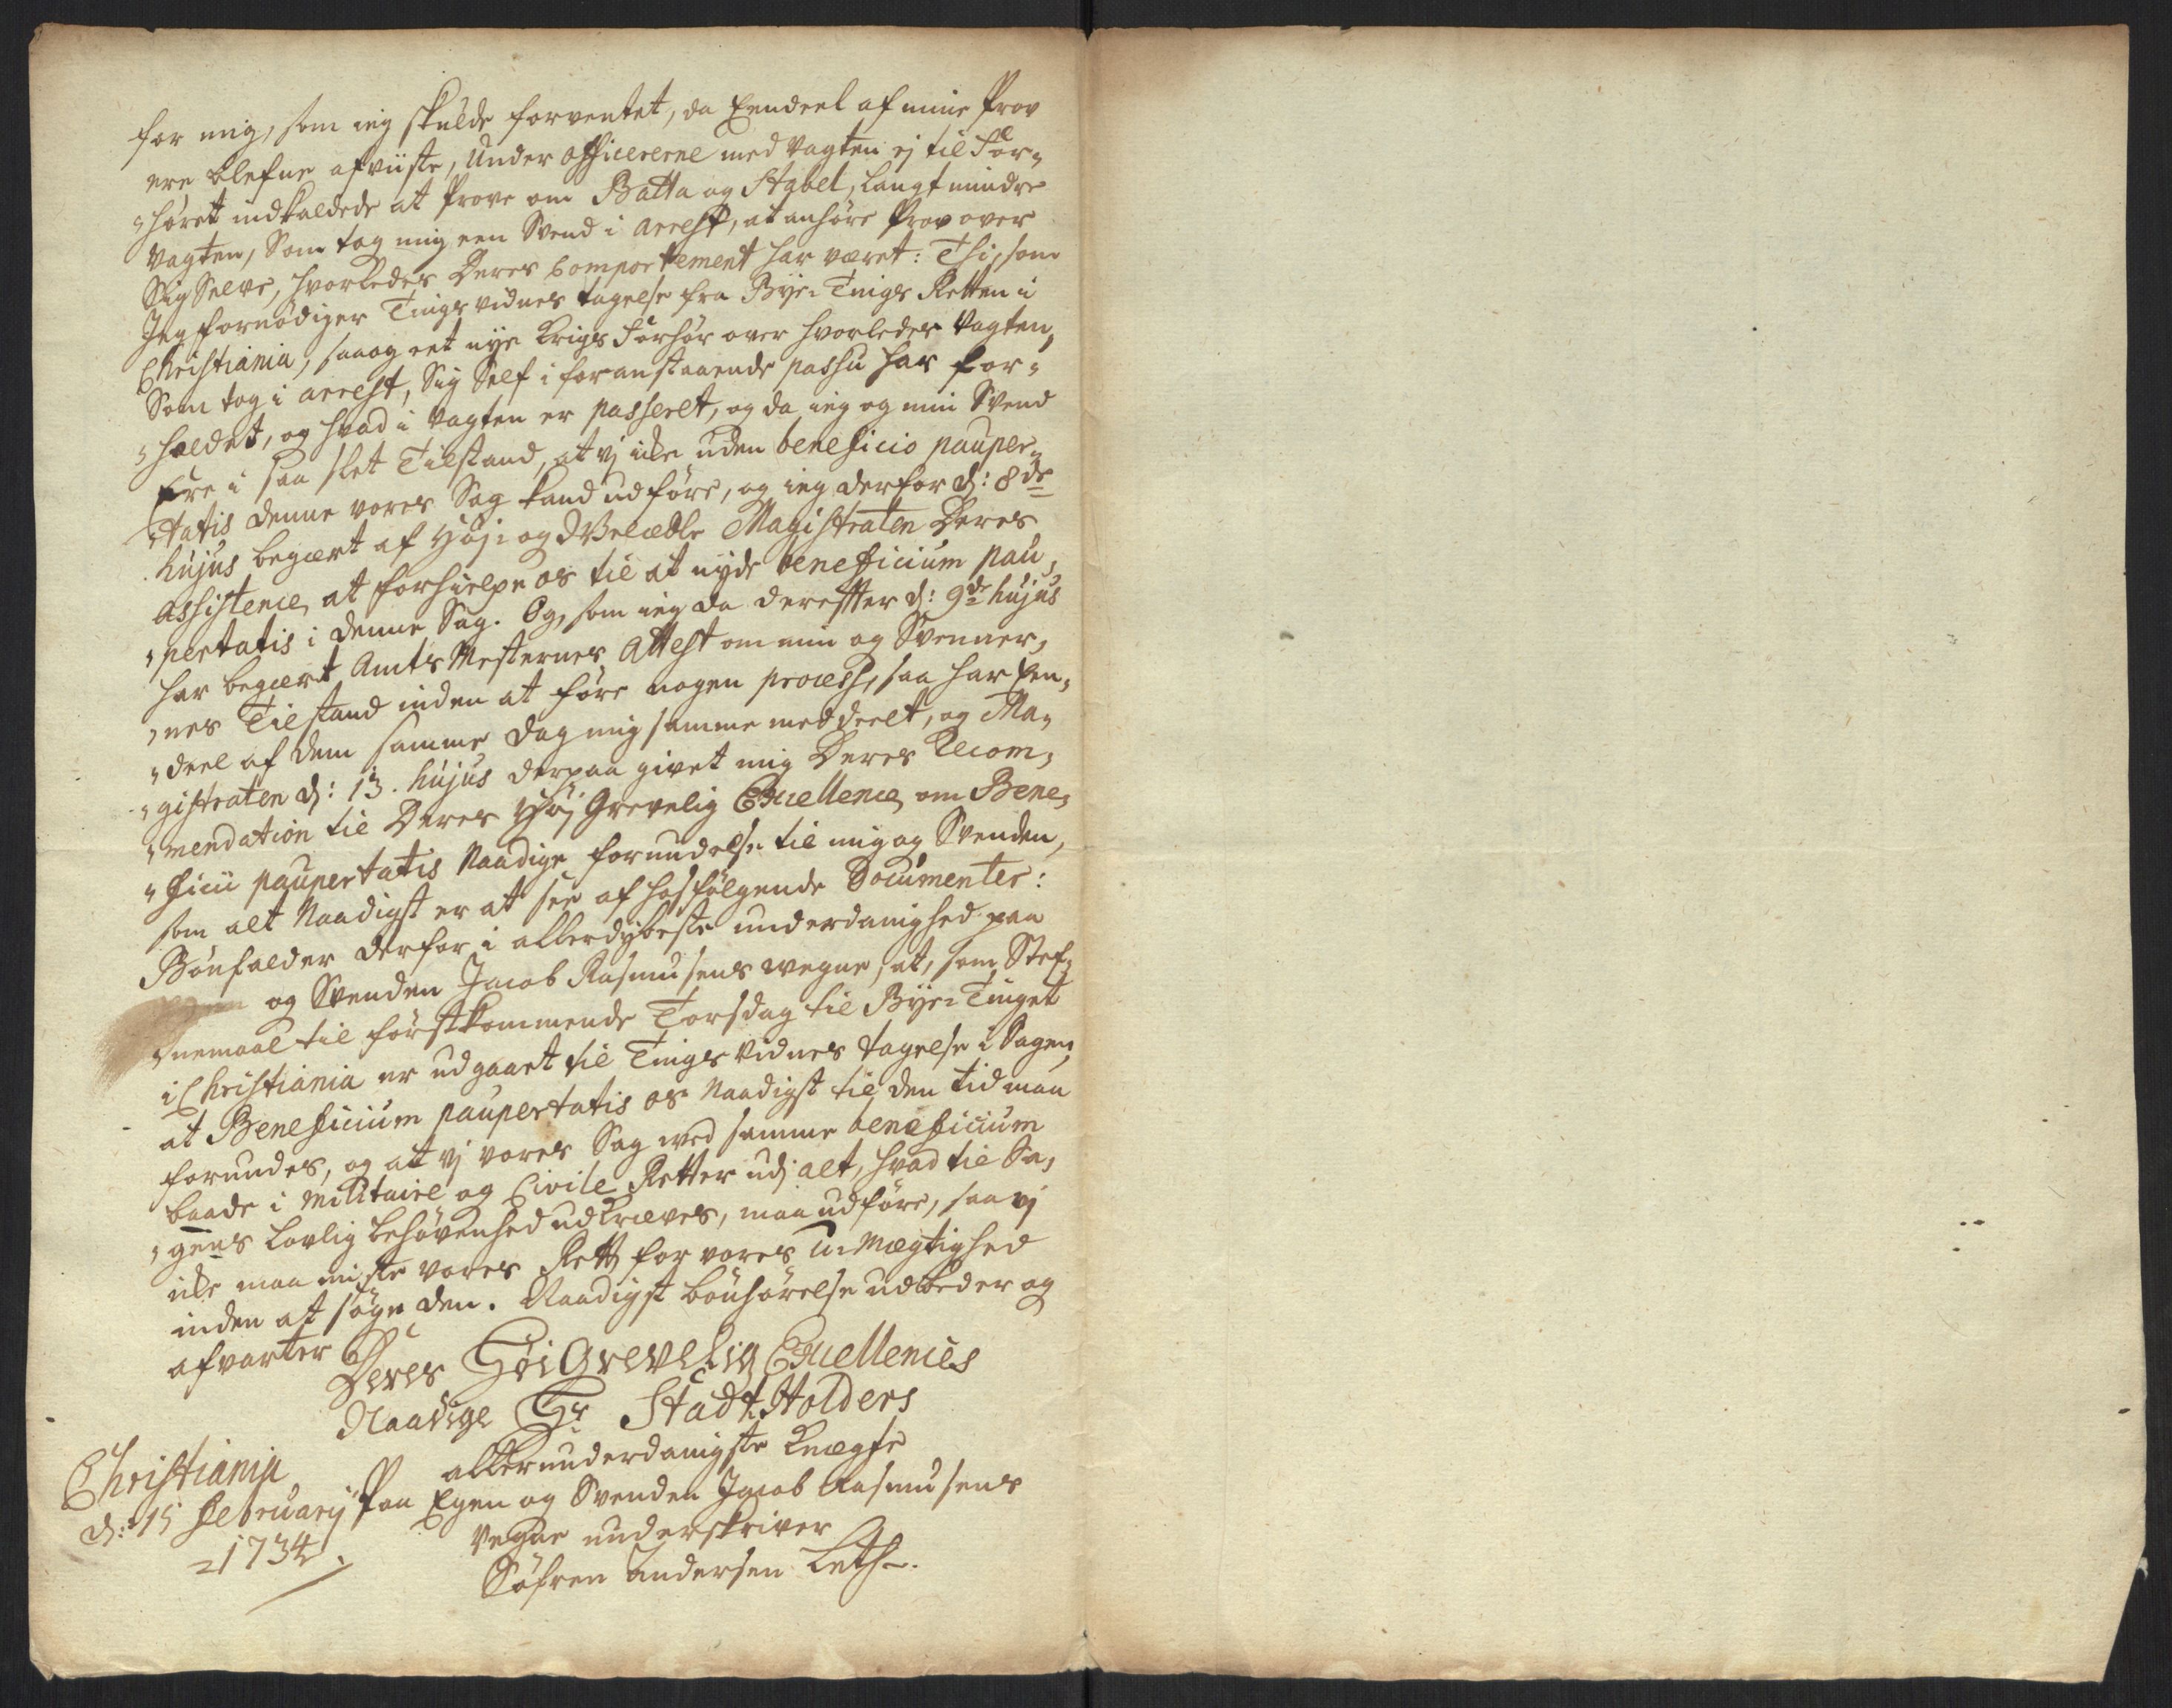 for mig, som ieg skulde forventet, da Eendeel af mine Prov
ere blefne afviiste, Under officererne med Vagten ej til For„
„høret indkaldede at Prove om Batta og Stabel, langt mindre
Vagten, Som tog mig een Svend i arrest, at anhøre Prov over
Sig Selve, hvorledes Deres Comportement har været: Thi, som
Jeg fornødiger Tings vidnes tagelse fra Bye-Tings Retten i
Christiania, saaog eet nye Krigs Forhør over hvorledes Vagten,
Som tog i arrest, Sig Self i foranstaaende passu har for„
„holdet, og hvad i Vagten er passeret, og da ieg og min Svend
Ere i saa slet Tilstand, at vj icke uden beneficio pauper„
„tatis denne vores Sag kand udføre, og ieg derfor d: 8de
hujus begiært af Høj- og Velædle Magistraten Deres
assistence, at forhielpe os til at nyde beneficium pau„
„pertatis i denne Sag. Og, som ieg da derefter d: 9de hujus
har begiært Amts Mesternes Attest om min og Svennens,
„nes Tilstand inden at føre nogen process, saa har Een„
„deel af dem samme dag mig samme meddeelt, og Ma„
„gistraten d: 13. hujus derpaa givet mig Deres Recom„
„mendation til Deres Høj Grevelig Excellence, om Bene„
„ficii paupertatis Naadige forundelse til mig og Svenden,
som alt Naadigst er at see af hosfølgende Documenter:
Bønfalder derfor i allerdybeste underdanighed paa
og Svenden Jacob Rasmusens vegne, at, som Stef„
„nemaal til førstkommende Torsdag til Bye-Tinget
i Christiania er udgaaet til Tings Vidnes tagelse i Sagen,
at Beneficium paupertatis os Naadigst til den tid maa
forundes, og at vj vores Sag med samme beneficium
baade i Militaire og Civile Retter udj alt, hvad til Sa„
„gens Lovlig behøvenhed udkræves, maa udføre, saa vj
icke maa miste vores Rett for vores U-Mægtighed
inden at søge den. Naadigst bønhørelse udbeder og
afvarter
Deres Høi Grevelig Excellences
Naadige Hr Stadt Holders
allerunderdanigste Knegte
Christiania
d: 15 February
1734
Paa Egen og Svenden Jacob Rasmusens
Vegne underskriver
Søfren Andersen Leth